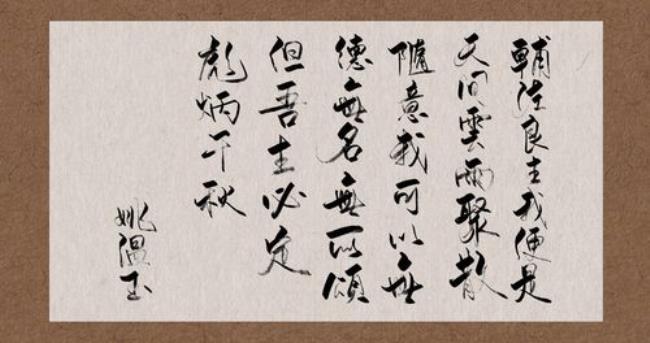 輔佐良主我便是
天間雲雨聚散
隨意我可以無
德無名無以頌
但吾主必定
彪炳千秋
姚溫玉